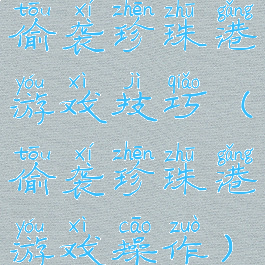 tōu xí zhēn zhū gǎng
偷袭珍珠港
yóu xì jì qiǎo
游戏技巧（
tōu xí zhēn zhū gǎng
偷袭珍珠港
yóu xì cāo zuò
游戏操作）